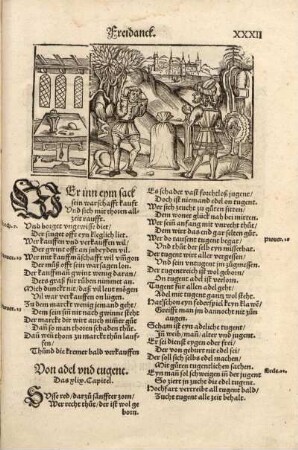 Freidanck.
XXXII
WEr inn eym sack
sein war schafft kaufft
Und sich mit thoren all-
zeit raufft.
Und borget ungewisse diet/
Der singet offt eyn kleglich liet.
Wer kauffen und verkauffen wil/
Der gwint offt an zu
Wer mit kauffmanschafft wil umgon
Der muß offt sein war lagon.
Der kauffman gwint wenig daran/
Ders graß für rüben nummet an.
Mich dunckt nit/ daß wol lust mögen
Vil war verkauffen on liegen.
Zu marckt thoren wenig jemand geht/
Dem sein sin nit nach gwinne steht
Der marckt thüt uns mit müer angst
Dañ so man thoren schaden thüt.
Und dañ thoren zu marckt
lauffen/
Thünd die kremer bald verkauffen
Von adel und tugent.
Das xlix. Capitel.
SUsse red/ darzu sänffter zorn/
Wer recht thüt/ der ist wol ge
born.
Es schadet vast forchtloß jugent/
Doch ist niemand edel on tugent.
Wer sich zeucht zu güten sitten/
Dem woner glück nah bei mitten.
Wer sein anfang mit unrecht thüt/
Dem wirt das end gar selten güt.
Wer do tausent tugent begat/
Und thüt der selb eyn misserhat.
Der tugent wirt aller vergessen/
Und sein untugent im zugmessen.
Der tugentreich ist wol geborn/
On tugent ist adel verlorn.
Tugent für allen adel geht/
Adel mit tugent gantz wol steht.
Hastschon eyn sobergsiel keyn klawe/
Greiffe man jn dannocht nit zu
augen.
Scham ist eyn adeliche tugent/
Zu weib/ man/ alter und jugent.
Er sei dienst eygen oder frei/
Der von geburt nit edel sei/
Der soll sich selbs edel machen/
Mit güten tugentlichen sachen.
Eyn man sol schweigen in der jugent
So ziert jn zucht die edel tugent.
Hochfart vertreibt all tugent bald/
Zucht tugent alle zeit behalt.